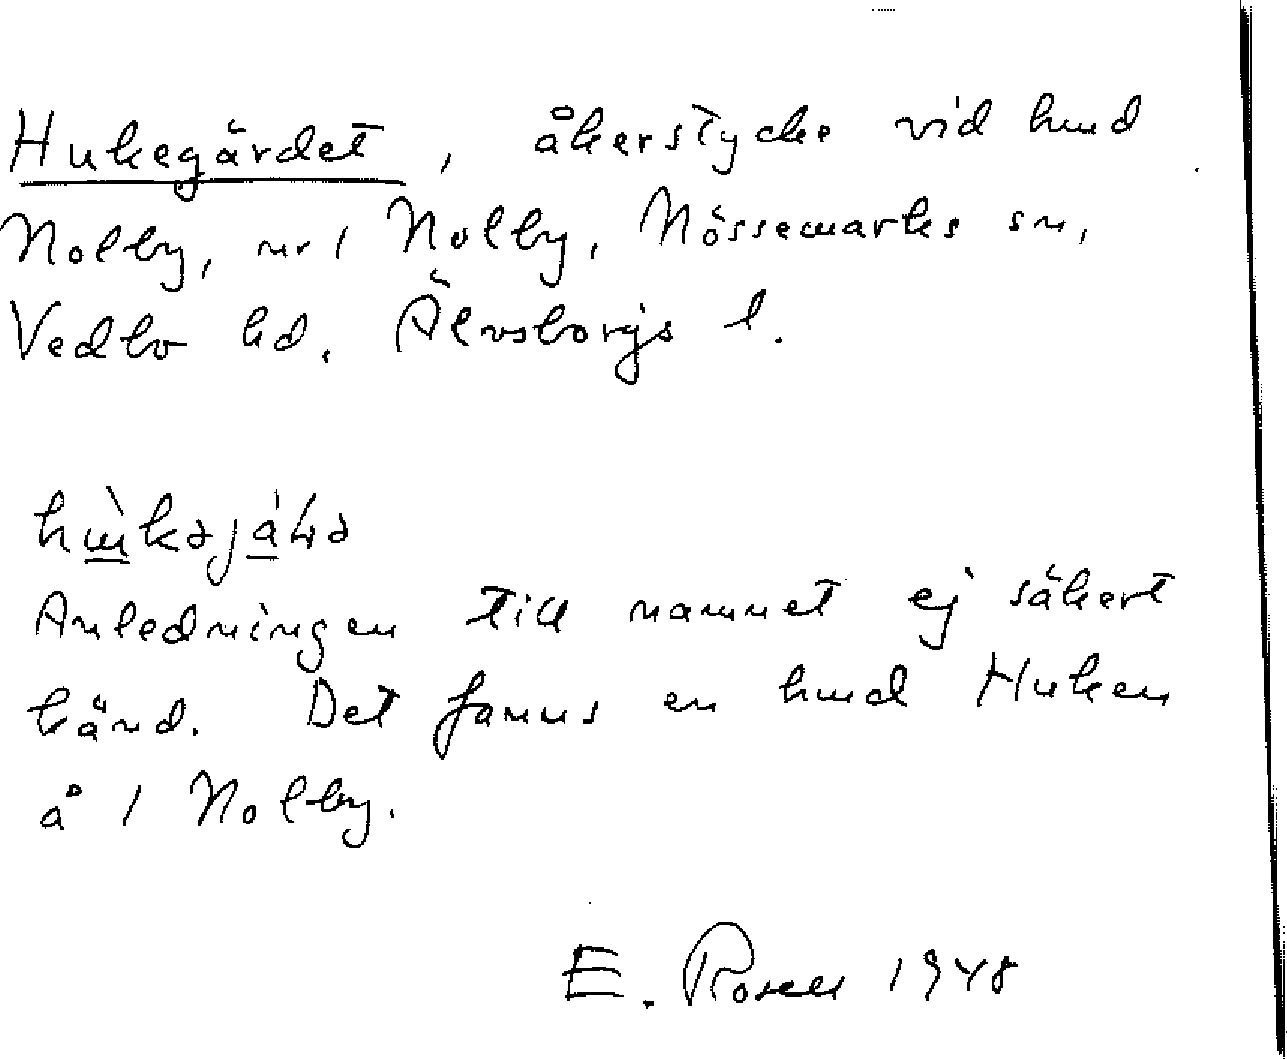 Hukegärdet, åkerstycke vid hmd
Nolby, nr 1 Nolby, Nössemarks sn,
Vedbo hd. Älvsborgs l.
Anledningen till namnet ej säkert
känd. Det fanns en hmd Huken
å 1 Nolby.
E. Rosell 1948